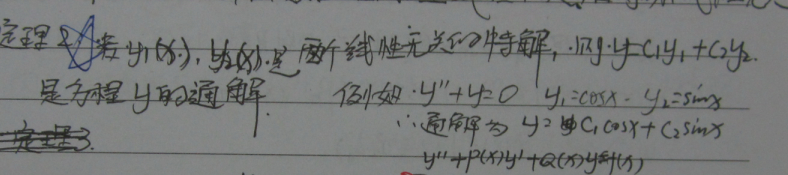 定理2 若y₁(x), y₂(x)是两个线性无关的特解,则y=C₁y₁+C₂y₂
是方程y的通解 例如 y''+y=0 y₁=cosx y₂=sinx
∴通解为 y=C₁cosx+C₂sinx
定理3
y''+P(x)y'+Q(x)y=f(x)